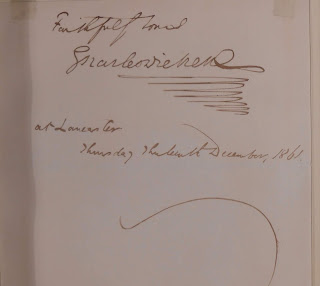 Faithfully Yours
Charles Dickens
at Lancaster
Thursday Twelfth December, 1861.